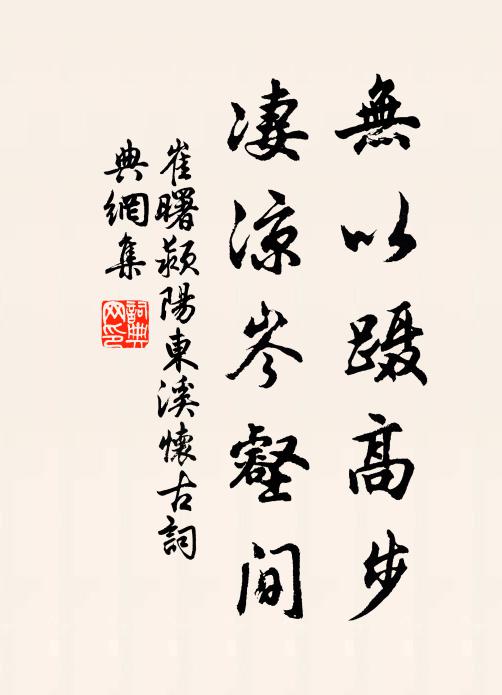 無以蹑高步
凄凉岑壑間
崔曙颍陽東溪懷古詞
典網集
詞典
网印